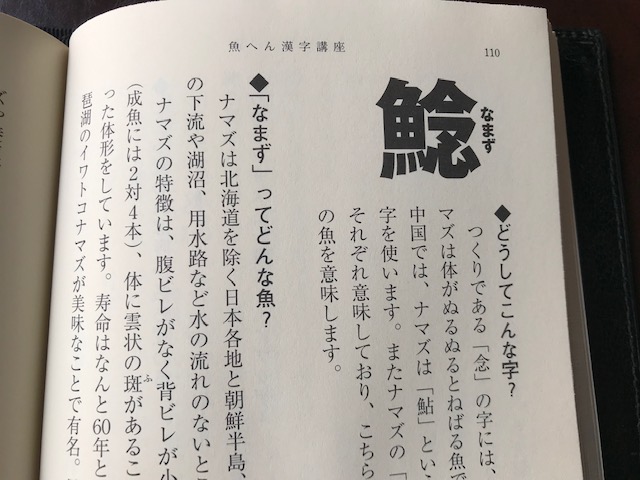 魚へん漢字講座
110
鯰
なまず
◆どうしてこんな字?
つくりである「念」の字には、
マズは体がぬるぬるとねばる魚で
中国では、ナマズは「鮎」とい
字を使います。またナマズの「
それぞれ意味しており、こちら
の魚を意味します。
◆「なまず」ってどんな魚?
ナマズは北海道を除く日本各地と朝鮮半島、
の下流や湖沼、用水路など水の流れのないと
ナマズの特徴は、腹ビレがなく背ビレが小
(成魚には2対4本)、体に雲状の斑があるこ
ふ
った体形をしています。寿命はなんと60年と
琵琶湖のイワトコナマズが美味なことで有名。